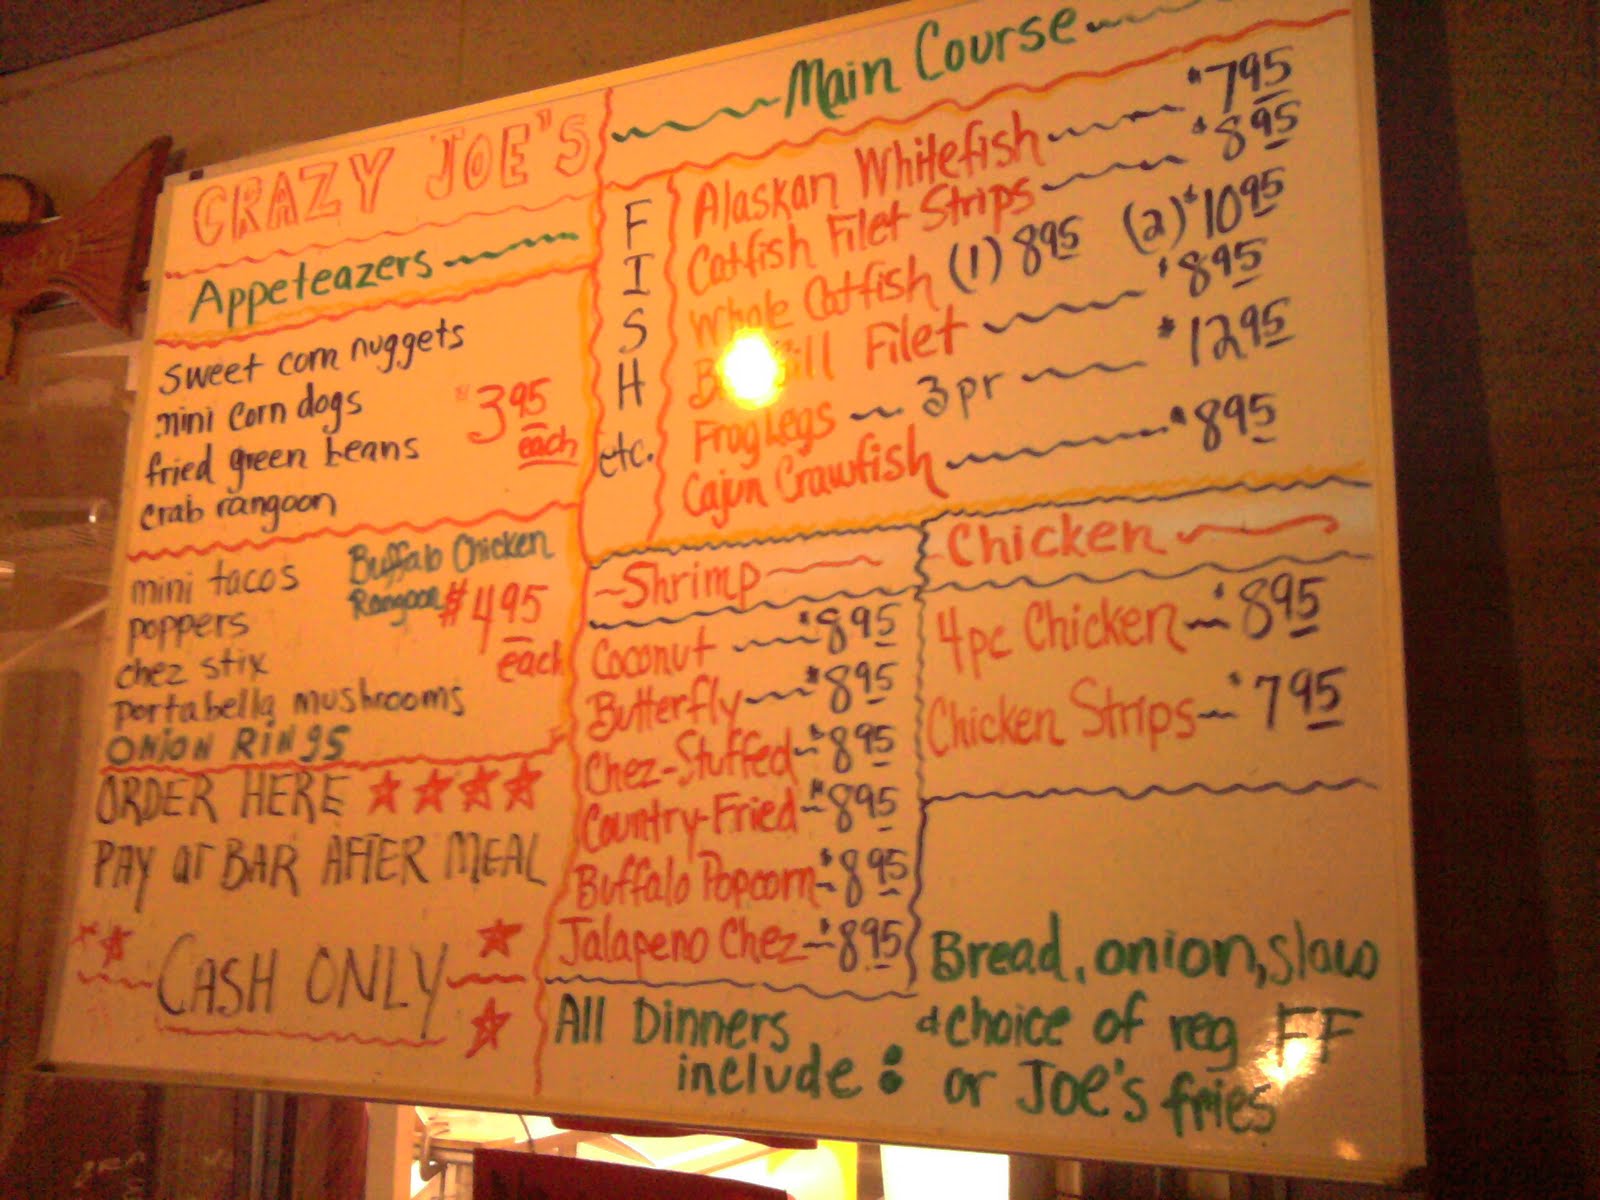 CRAZY JOE'S
Appeteazers
sweet corn nuggets
mini corn dogs
fried green beans
crab rangoon
$3.95
each
mini tacos
poppers
chez stix
portabella mushrooms
ONION RINGS
Buffalo Chicken
Rangoon
$4.95
each
ORDER HERE
PAY at BAR AFTER MEAL
CASH ONLY
Main Course
FISH
etc.
Alaskan Whitefish $7.95
Catfish Filet Strips $8.95
Whole Catfish (1) 8.95 (2) $10.95
Filet $8.95
Frog Legs 3pr $12.95
Cajun Crawfish $8.95
Shrimp
Coconut $8.95
Butterfly $8.95
Chez-Stuffed $8.95
Country-Fried $8.95
Buffalo Popcorn $8.95
Jalapeno Chez $8.95
Chicken
4pc Chicken $8.95
Chicken Strips $7.95
All Dinners
include:
Bread, onion, slaw
& choice of reg FF
or Joe's fries